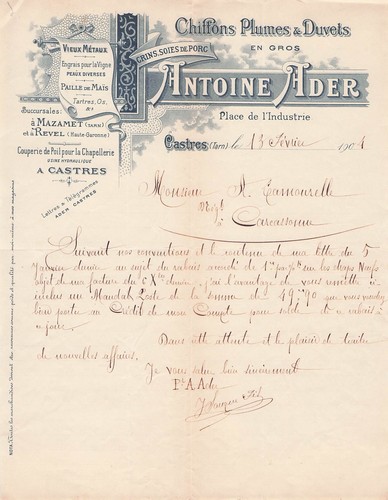 Chiffons Plumes & Duvets
EN GROS
CRINS, SOIES DE PORC
ANTOINE ADER
Place de l'Industrie
VIEUX MÉTAUX
Engrais pour la Vigne
PEAUX DIVERSES
PAILLE DE MAÏS
Tartres, Os,
Succursales:
à MAZAMET (TARN)
et à REVEL (Haute-Garonne)
Couperie de Poil pour la Chapellerie
USINE HYDRAULIQUE
A CASTRES
Lettres & Télégrammes
ADER CASTRES
Castres (Tarn) le 13 Février 1901
Monsieur A.
Négt
Carcassonne
Suivant nos conventions et le contenu de ma lettre du 5
Janvier au sujet du rabais de sur les
objet de ma facture du 6 Xbre j'ai l'avantage de vous remettre
inclus un Mandat Poste de la somme de 49,90 que vous voudrez
bien porter au Crédit de mon Compte pour solde
Dans cette attente et le plaisir de traiter
de nouvelles affaires.
Je vous salue bien sincèrement
Pr A. Ader